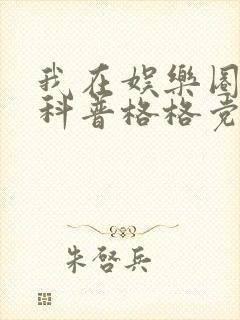 我在娱樂圈
科普格格党
朱啓兵